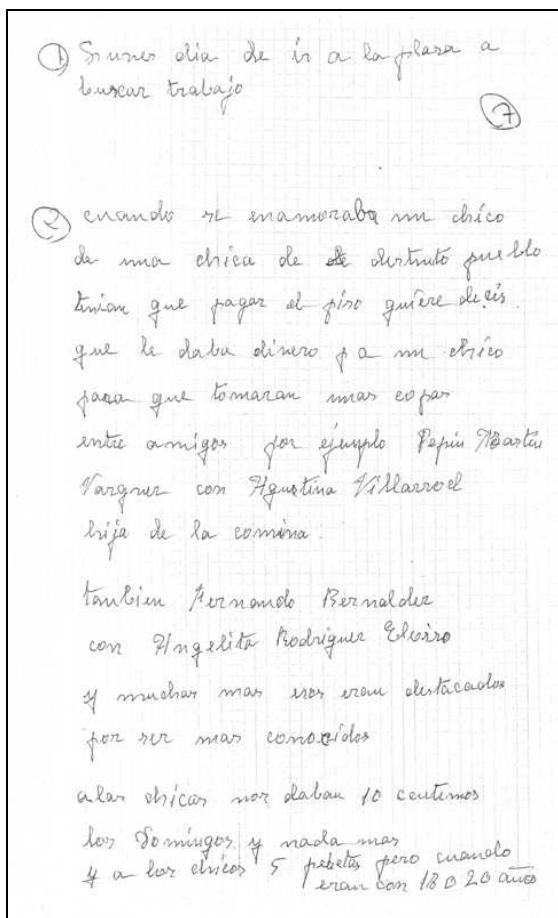 ① Si unos dia de ir a la plasa a
buscar trabajo
⑦
② cuando se enamoraba un chico
de una chica de distinto pueblo
tenian que pagar el piso quiere decir
que le daba dinero a un chico
para que tomaran unas copas
entre amigos por ejemplo Pepin Martin
Vargner con Agustina Villarroel
hija de la comina.
tanbien Fernando Bernaldez
con Angelita Rodriguez
y muchas mas esos eran destacados
por ser mas conocidos
a las chicas nos daban 10 centimos
los Domingos y nada mas
y a los chicos 5 pesetas pero cuando
eran con 18 o 20 años